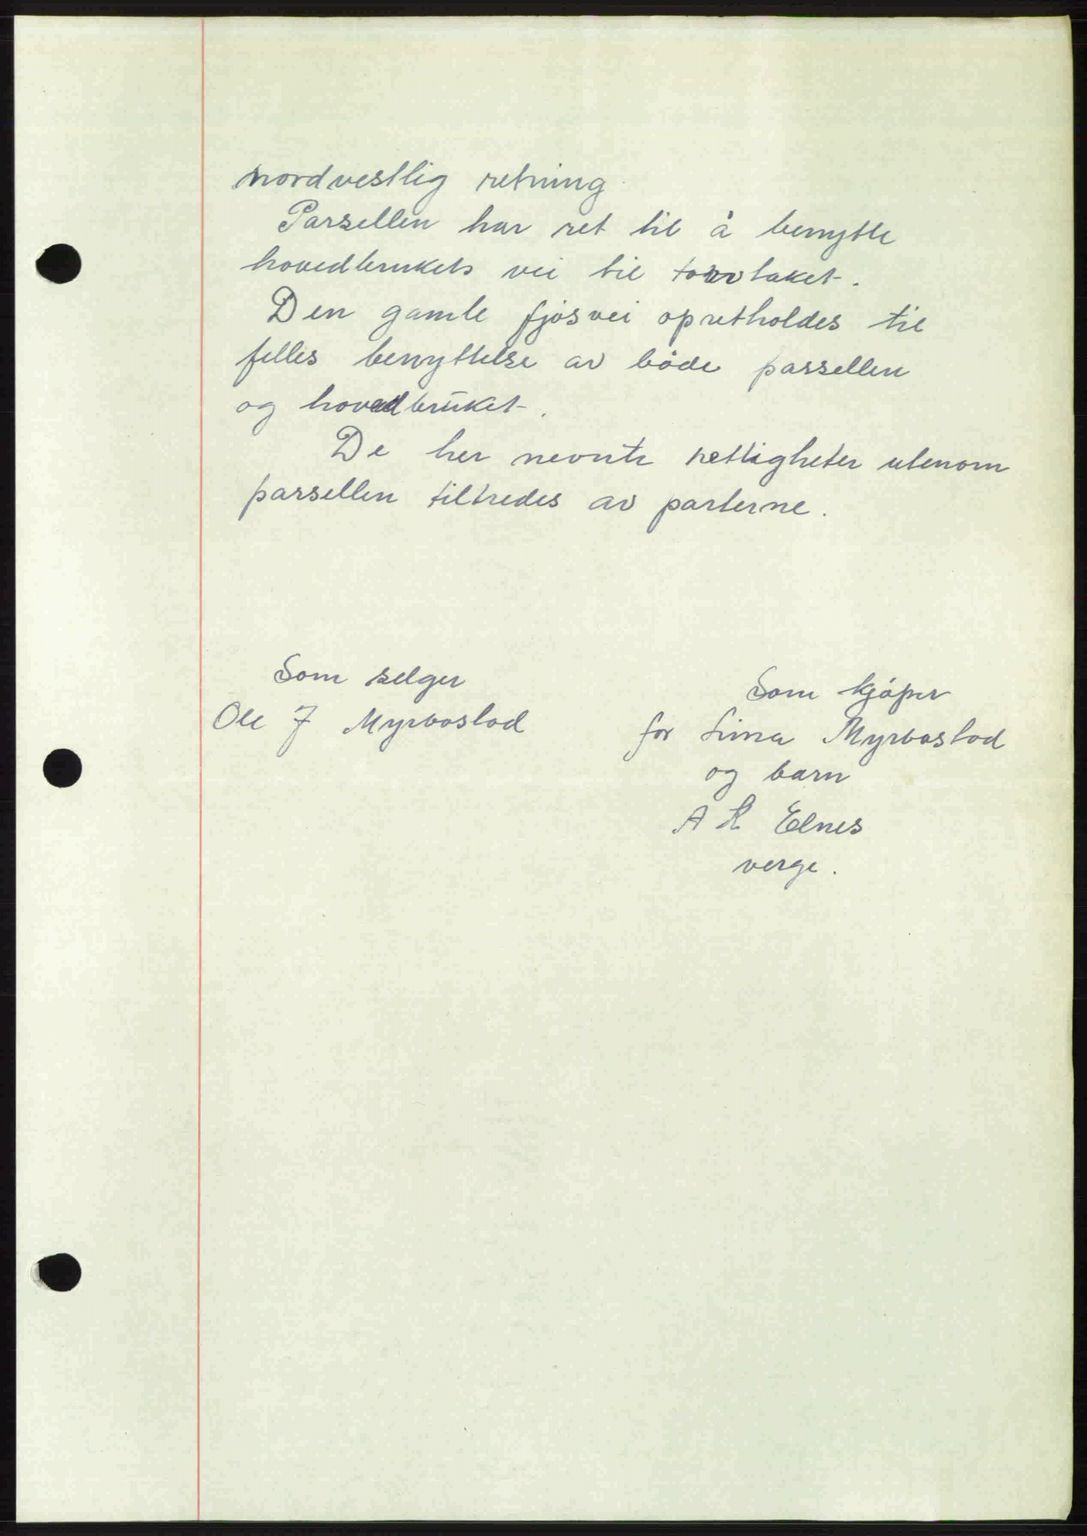 nordvestlig retning
Parsellen har ret til å benytte
hovedbrukets vei til torvtaket.
Den gamle fjøsvei opretholdes til
felles benyttelse av både parsellen
og hovedbruket.
De her nevnte rettigheter utenom
parsellen tiltredes av parterne.
Som selger
Ole J Myrbostad
Som kjøper
for Lina Myrbostad
og barn
A K Elnes
verge.